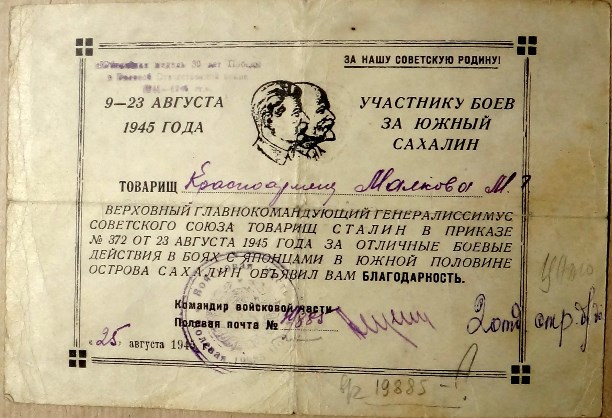 ЗА НАШУ СОВЕТСКУЮ РОДИНУ!
9—23 АВГУСТА
1945 ГОДА
УЧАСТНИКУ БОЕВ
ЗА ЮЖНЫЙ
САХАЛИН
ТОВАРИЩ Красноармеец М.
ВЕРХОВНЫЙ ГЛАВНОКОМАНДУЮЩИЙ ГЕНЕРАЛИССИМУС
СОВЕТСКОГО СОЮЗА ТОВАРИЩ СТАЛИН В ПРИКАЗЕ
№ 372 ОТ 23 АВГУСТА 1945 ГОДА ЗА ОТЛИЧНЫЕ БОЕВЫЕ
ДЕЙСТВИЯ В БОЯХ С ЯПОНЦАМИ В ЮЖНОЙ ПОЛОВИНЕ
ОСТРОВА САХАЛИН ОБЪЯВИЛ ВАМ БЛАГОДАРНОСТЬ.
Командир войсковой части
Полевая почта № 19885
„25" августа 194
19885